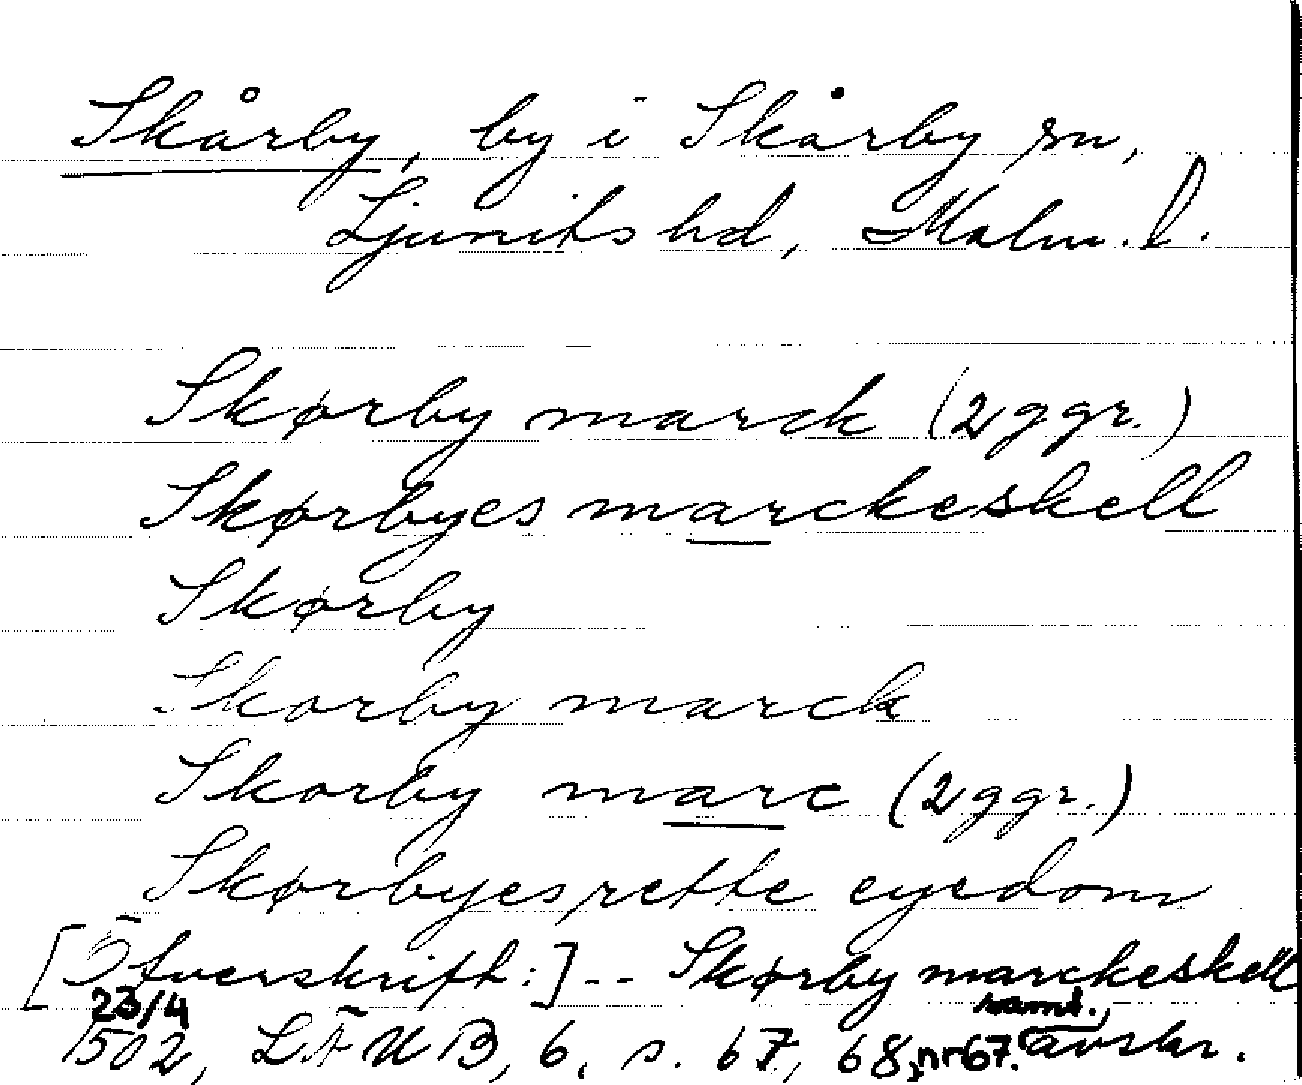 Skårby, by i Skårby sn,
Ljunits hd, Malm. l.
Skørby marck (2 ggr.)
Skørbyes marckeskell
Skørby
Skorby marck
Skorby marc (2 ggr.)
Skørbyes rette eyedom
[Öfverskrift:] -- Skørby marckeskell
23/4 samt.,
1502, LÄUB, 6, s. 67, 68, nr 67. avskr.